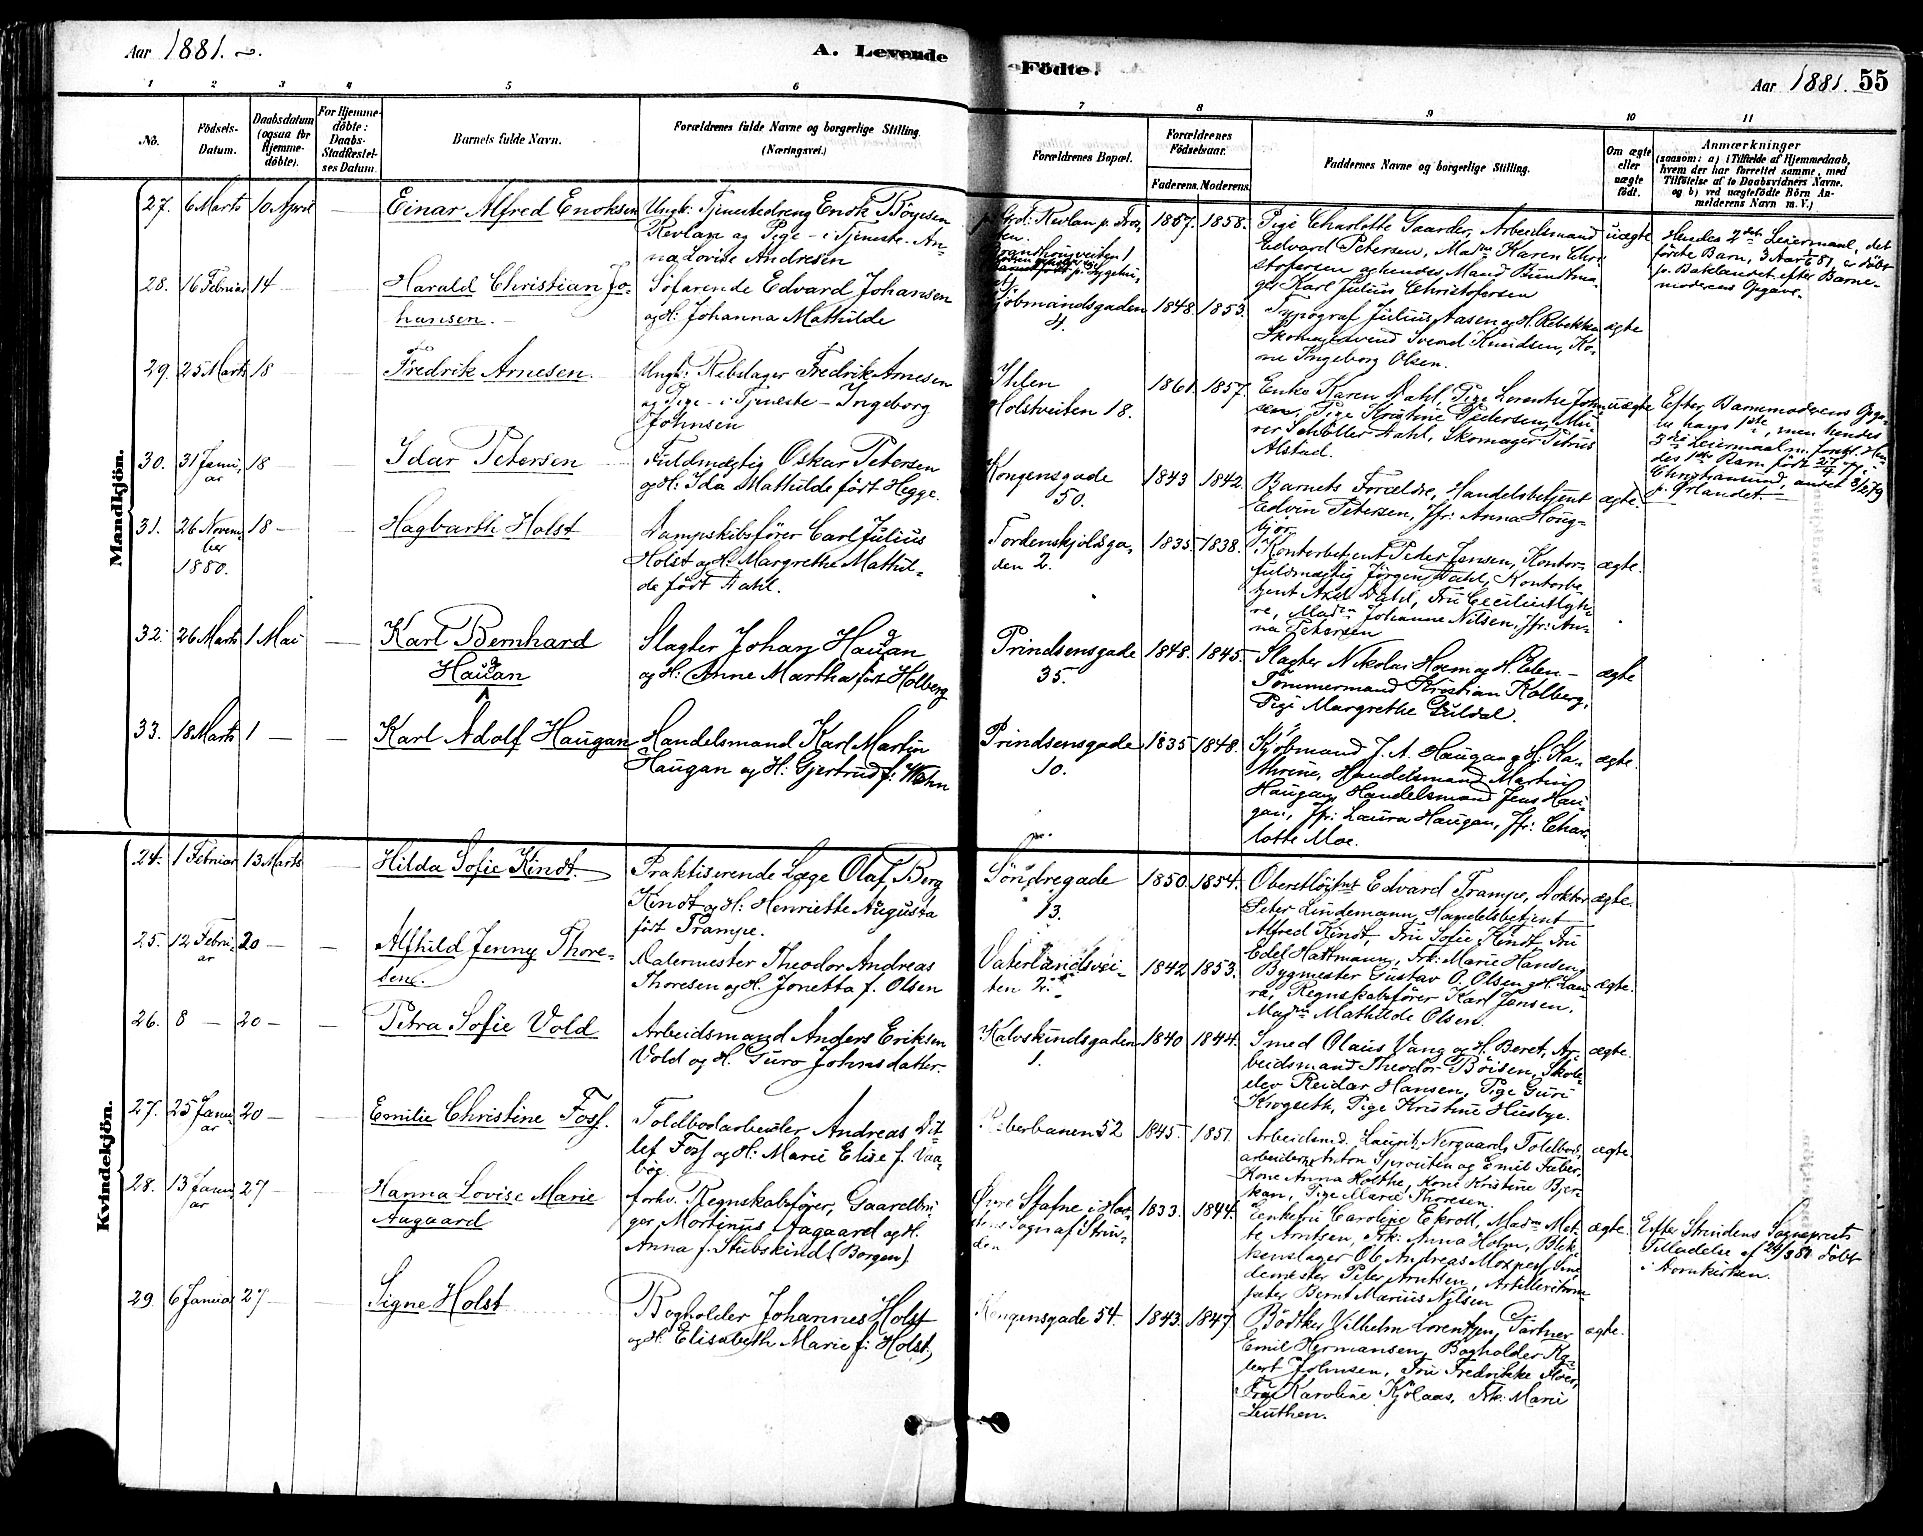 Aar 1881.
A. Levende
Födte.
Aar 1881. 55
1 2 3 4 5 6 7 8 9 10 11
No.
Födsels-Datum.
Daabsdatum (ogsaa for Hjemmedöbte).
For Hjemmedöbte: Daabs-Stadfæstelses Datum.
Barnets fulde Navn.
Forældrenes fulde Navne og borgerlige Stilling.
(Næringsvei.)
Forældrenes Bopæl.
Forældrenes Födselsaar.
Faderens. Moderens.
Faddernes Navne og borgerlige Stilling.
Om ægte eller uægte født.
Anmærkninger
(saasom: a) i Tilfælde af Hjemmedaab,
hvem der har forrettet samme, med
Tilföielse af to Daabsvidners Navne.
og b) ved uægtefödte Börn An-
melderens Navn m. V.)
Mandkjön.
27. 6 Marts 10 April — Einar Alfred Enoksen
Ungk: Tjenestedreng Enok Böyesen
Revlan og Pige - i Tjeneste - An-
na Lovise Andresen
1857. 1858.
Pige Charlotte Gaarder, Arbeidsmand
Edvard Petersen, Madm Karen Chri-
stofersen og hendes Mand Bundtma-
ger Karl Julius Christofersen
uægte
Hendes 2det Leiermaal, det
förste Barn, 3 Aar, er döbt
p. Baklandet efter Barne-
moderens Opgave.
28. 16 Februar 14 — Harald Christian Jo-
hansen.
Söfarende Edvard Johansen
og H: Johanna Mathilde
Kjöbmandsgaden
4.
1848. 1853.
Typograf Julius Aasen og H. Rebekka
Skomagersvend Svend Knudsen, Ko-
ne Ingeborg Olsen.
ægte
29. 25 Marts 18 — Fredrik Arnesen.
Ungk: Rebslager Fredrik Arnesen
og Pige - i Tjeneste - Ingeborg
Johnsen
Ihlen
Holstveiten 18.
1861. 1857.
Enke Karen Dahl, Pige Lorentze John-
sen, Pige Kristine Pedersen, Mu-
rer Schöller Dahl, Skomager Petrus
Alstad.
uægte
Efter Barnemoderens Opga-
ve hans 1ste, men hendes
3die Leiermaal
Christiansund, andet
p. Örlandet.
30. 31 Janu-
ar 18 — Idar Petersen
Fuldmægtig Oskar Petersen
og H: Ida Mathilde födt Hegge.
Kongensgade
50.
1843 1842.
Barnets Forældre, Handelsbetjent
Edvin Petersen, Jfr: Anna Houg-
björ
ægte.
31. 26 Novem-
ber
1880. 18 — Hagbarth Holst
Dampskibsförer Carl Julius
Holst og H: Margrethe Mathil-
de födt Dahl.
Tordenskjoldsga-
den 2.
1835. 1838.
Kontorbetjent Peder Jensen, Kontor-
fuldmægtig Jörgen Dahl, Kontorbe-
tjent Axel Dahl, Fru Cecilie
Madm Johanne Nilsen, Jfr: An-
na Petersen
ægte.
32. 26 Marts 1 Mai — Karl Bernhard
Haugan
Slagter Johan Haugan
og H: Anne Martha födt Holberg
Prindsensgade
35.
1848. 1845.
Slagter Nikolai Hoem og H. Elen -
Tömmermand Kristian Kolberg,
Pige Margrethe Guldal.
ægte
33. 18 Marts 1 — — Karl Adolf Haugan
Handelsmand Karl Martin
Haugan og H: Gjertrud f: Wæhn
Prindsensgade
10.
1835 1848.
Kjöbmand J. A. Haugan og H: Ka-
thrine, Handelsmand Martin
Haugan, Handelsmand Jens Hau-
gan, Jfr: Laura Haugan, Jfr: Char-
lotte Moe.
ægte.
Kvindekjön.
24. 1 Februar 13 Marts — Hilda Sofie Kindt.
Praktiserende Læge Olaf Berg
Kindt og H: Henriette Augusta
födt Trampe.
Söndregade
13.
1850. 1854.
Oberstlöjtnt Edvard Trampe, Doktor
Peter Lindemann, Handelsbetjent
Alfred Kindt, Fru Sofie Kindt, Fru
Edel Hartmann, Frk: Marie Hansen
ægte.
25. 12 Febru-
ar 20 — — Alfhild Jenny Thore-
sen.
Malermester Theodor Andreas
Thoresen og H. Jonetta f. Olsen
Vaterlandsvei-
ten 2.
1842 1853.
Bygmester Gustav O. Olsen og H. Lau-
ra, Regnskabsförer Karl Jensen.
Madm Mathilde Olsen.
ægte.
26. 8 — 20 — — Petra Sofie Vold
Arbeidsmand Anders Eriksen
Vold og H. Guro Johnsdatter.
Kalvskindsgaden
1.
1840 1844.
Smed Olaus Vang og H. Beret, Ar-
beidsmand Theodor Böisen, Skole-
elev Reidar Hansen, Pige Guri
Krogseth, Pige Kristine Husbye.
ægte.
27. 25 Janu-
ar 20 — Emilie Christine Foss.
Toldbodarbeider Andreas Dit-
lef Foss og H: Marie Elise f. Vaa-
bög.
Reberbanen 52
1845. 1851.
Arbeidsmd. Laurits Nergaard, Toldbod-
arbeiderne Anton Sprouten og Emil Faber,
Kone Anna Holthe, Kone Kristine Bjer-
kan, Pige Marie Thoresen.
ægte.
28. 13 Janu-
ar 27 — Hanna Lovise Marie
Aagaard
forhv. Regnskabsförer, Gaardbru-
ger Mortinus Aagaard og H.
Anna f. Stubskind (Borgen)
Övre Stafne i
Sogn af Strin-
den
1833. 1844.
Enkefru Caroline Ekroll, Madm Met-
te Arntsen, Frk: Anna Holm, Blik-
kenslager Ole Andreas Moxness, Sme-
demester Peter Arntsen,
Bernt Marius Nilsen
ægte.
Efter Strindens Sogneprests
Tilladelse af 24/3 81 döbt
i Domkirken.
29 6 Januar 27 — Signe Holst
Bogholder Johannes Holst
og H. Elisabeth Marie f: Holst,
Kongensgade 54.
1843. 1847
Bödtker Vilhelm Lorentzen, Gartner
Emil Hermansen, Bogholder Ro-
bert Johnsen, Fru Fredrikke Hoes,
Fru Karoline Kjölaas, Frk: Marie
Leuthen.
ægte.